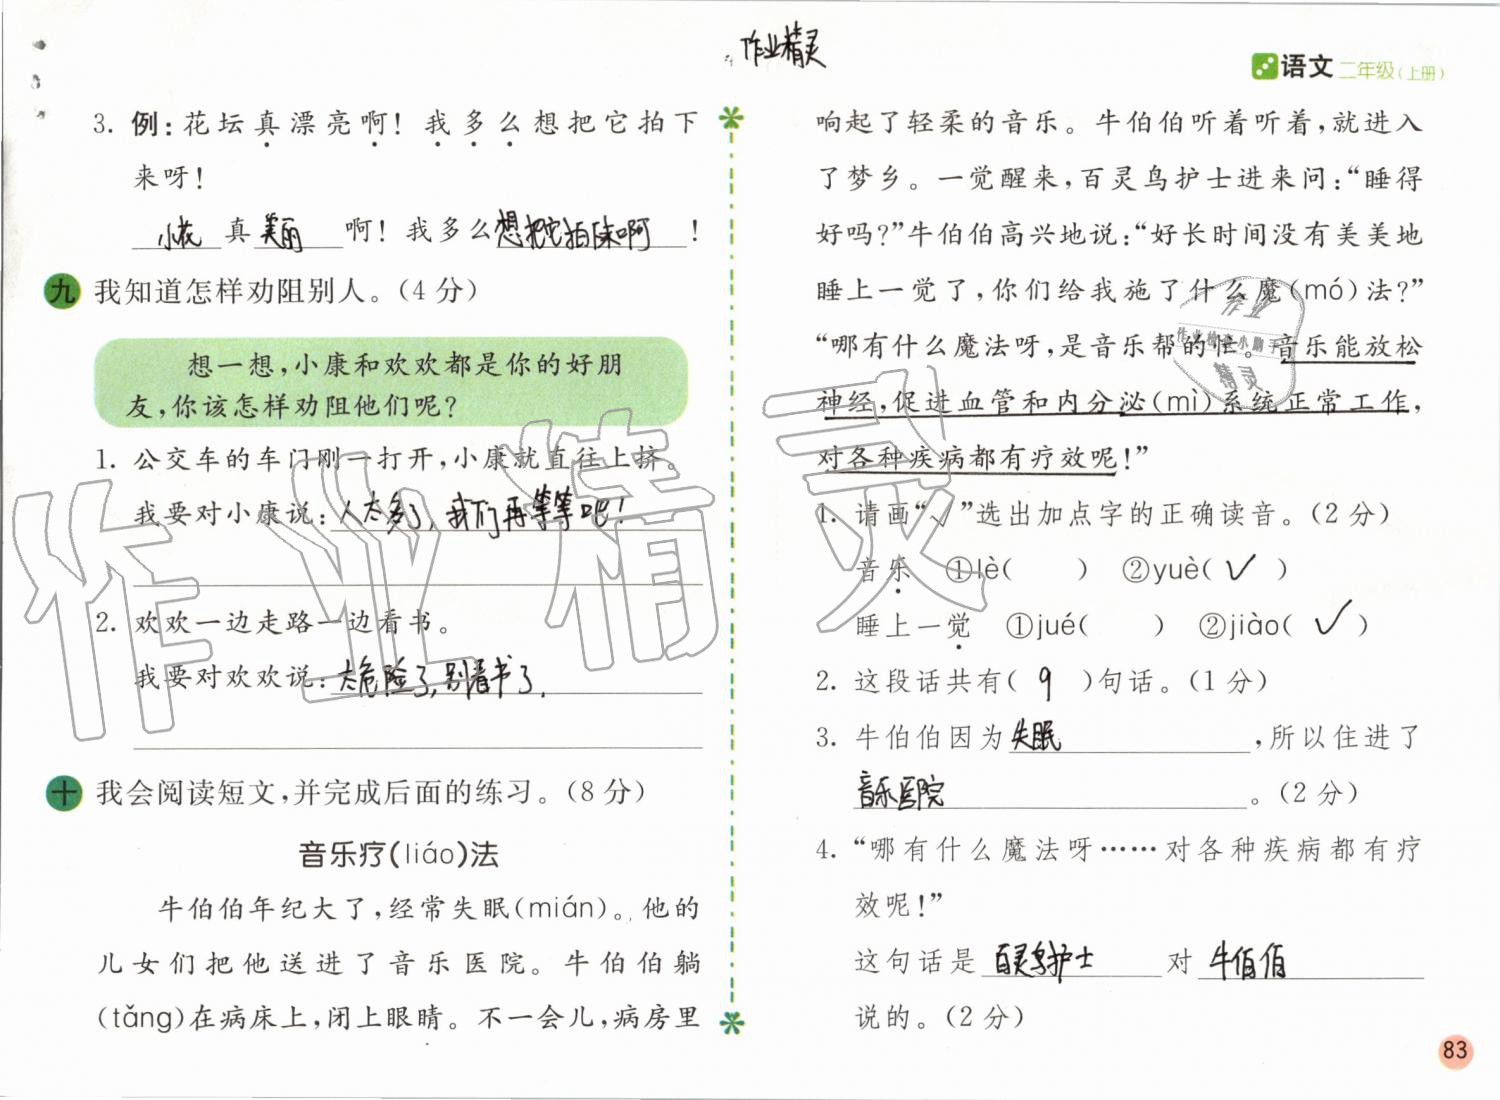 作业精灵
语文 二年级(上册)
3. 例:花坛真漂亮啊!我多么想把它拍下
来呀!
小花 真 美丽 啊!我多么 想把它拍下来啊 !
九 我知道怎样劝阻别人。(4分)
想一想,小康和欢欢都是你的好朋
友,你该怎样劝阻他们呢?
1. 公交车的车门刚一打开,小康就直往上挤。
我要对小康说:人太多了,我们再等等吧!
2. 欢欢一边走路一边看书。
我要对欢欢说:太危险了,别看书了.
十 我会阅读短文,并完成后面的练习。(8分)
音乐疗(liáo)法
牛伯伯年纪大了,经常失眠(mián)。他的
儿女们把他送进了音乐医院。牛伯伯躺
(tǎng)在病床上,闭上眼睛。不一会儿,病房里
响起了轻柔的音乐。牛伯伯听着听着,就进入
了梦乡。一觉醒来,百灵鸟护士进来问:“睡得
好吗?”牛伯伯高兴地说:“好长时间没有美美地
睡上一觉了,你们给我施了什么魔(mó)法?”
“哪有什么魔法呀,是音乐帮的忙。音乐能放松
神经,促进血管和内分泌(mì)系统正常工作,
对各种疾病都有疗效呢!”
1. 请画“√”选出加点字的正确读音。(2分)
音乐 ①lè( ) ②yuè( ✓ )
睡上一觉 ①jué( ) ②jiào( ✓ )
2. 这段话共有( 9 )句话。(1分)
3. 牛伯伯因为 失眠 ,所以住进了
音乐医院 。(2分)
4. “哪有什么魔法呀……对各种疾病都有疗
效呢!”
这句话是 百灵鸟护士 对 牛伯伯
说的。(2分)
83
作业精灵
作业
精灵